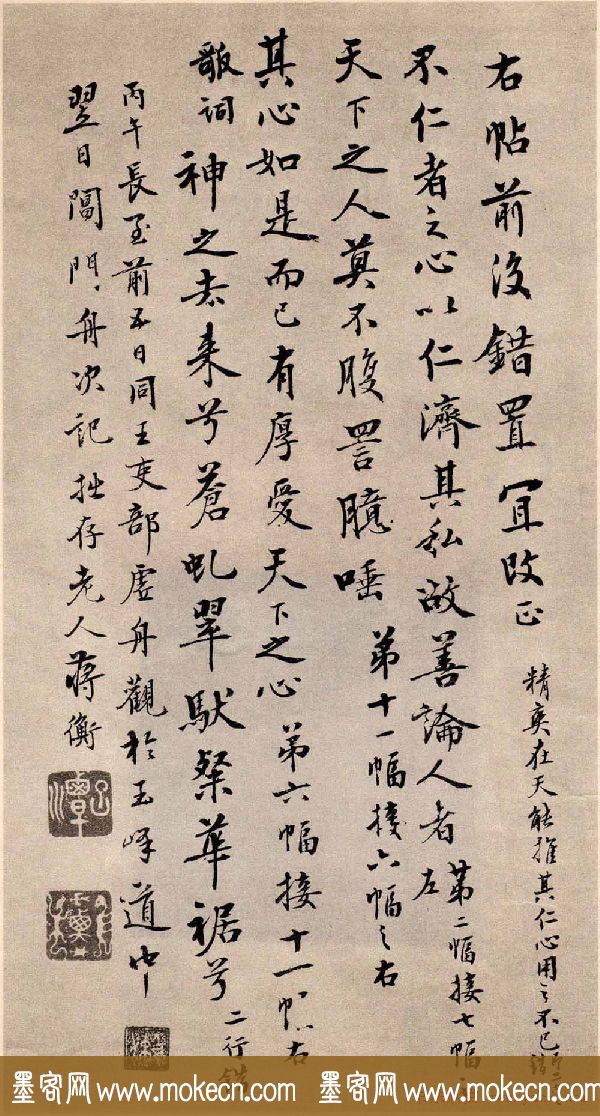 右帖前後錯置宜改正
精爽在天能推其仁心用之不已
不仁者之心以仁濟其私故善論人者 第二幅接七幅之
左
天下之人莫不腹詈臆唾 第十一幅接六幅之右
其心如是而已有厚愛天下之心 第六幅接十一幅右
歌詞 神之去来兮蒼虬翠駅粲華裾兮 二行錯
丙午長至前五日同王吏部虚舟觀於玉峰道中
翌日閶門舟次記 拙存老人蒋衡
墨客网 www.mokecn.com 墨客网 www.mokecn.com